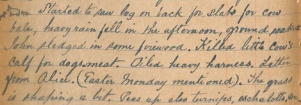 Started to saw log on back for slabs for cow
bale, heavy rain fell in the afternoon, ground soaked
John sledged in some firewood. Killed little Cow's
calf for dogsmeat. Oiled heavy harness. Letter
from Alice. (Easter Monday mentioned). The grass
is shaping a bit. Peas up also turnips, eschalots,